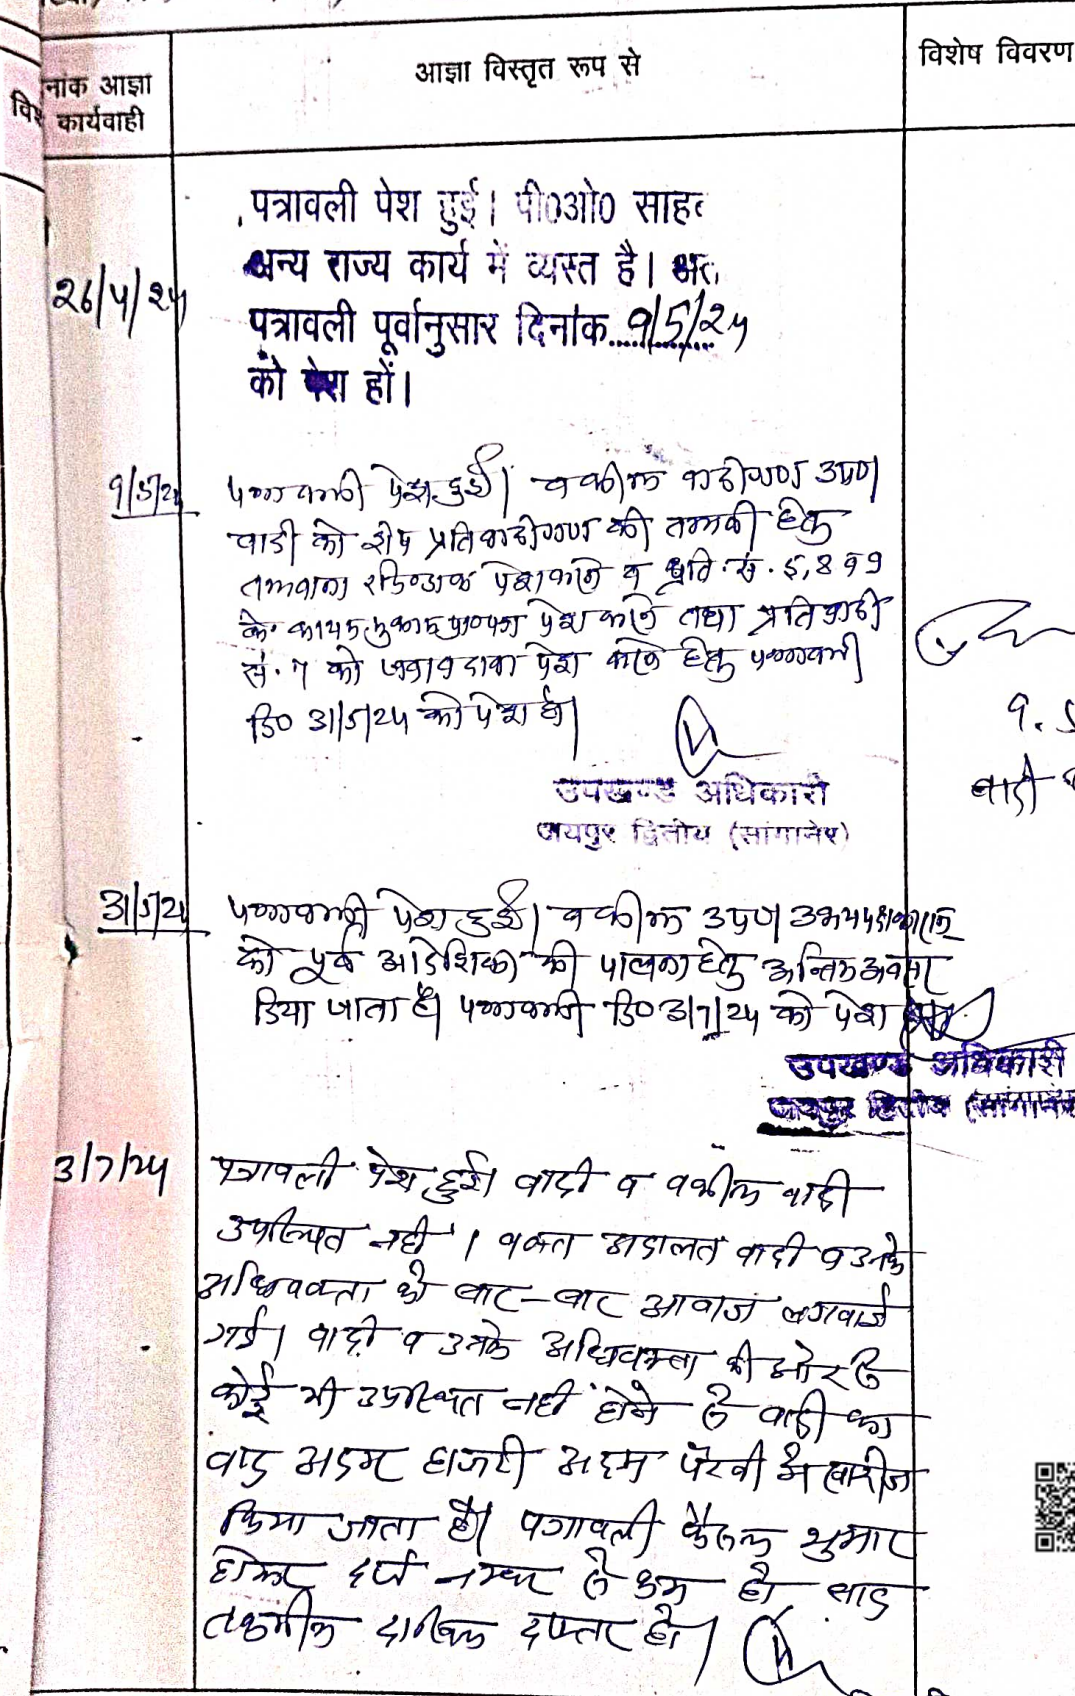 नांक आज्ञा
कार्यवाही
आज्ञा विस्तृत रूप से
विशेष विवरण
26/4/24
पत्रावली पेश हुई। पी0ओ0 साहब
अन्य राज्य कार्य में व्यस्त है। अतः
पत्रावली पूर्वानुसार दिनांक 9/5/24
को पेश हों।
9/5/24
पत्रावली पेश हुई। वकील वादीगण उप०।
वादी को शेष प्रतिवादीगण की तलबी हेतु
तलवाना रजि० डाक पेश करने व प्रति. सं. 5,8 व 9
के कायम मुकाम प्रा०पत्र पेश करने तथा प्रतिवादी
सं. 7 को जवाब दावा पेश करने हेतु पत्रावली
दि० 31/5/24 को पेश हो।
उपखण्ड अधिकारी
जयपुर द्वितीय (सांगानेर)
वादी
31/5/24
पत्रावली पेश हुई। वकील उप० उभयपक्षकारान्
को पूर्व आदेशिका की पालना हेतु अन्तिम अवसर
दिया जाता है। पत्रावली दि० 3/7/24 को पेश हो।
उपखण्ड अधिकारी
जयपुर द्वितीय (सांगानेर
3/7/24
पत्रावली पेश हुई। वादी व वकील वादी
उपस्थित नहीं। वक्त अदालत वादी व उनके
अधिवक्ता को बार-बार आवाज लगवाई
गई। वादी व उनके अधिवक्ता की ओर से
कोई भी उपस्थित नहीं होने से वादी का
वाद अदम हाजरी अदम पैरवी में खारीज
किया जाता है। पत्रावली फैसल शुमार
होकर दर्ज नम्बर से कम हो बाद
तकमील दाखिल दफ्तर हो।